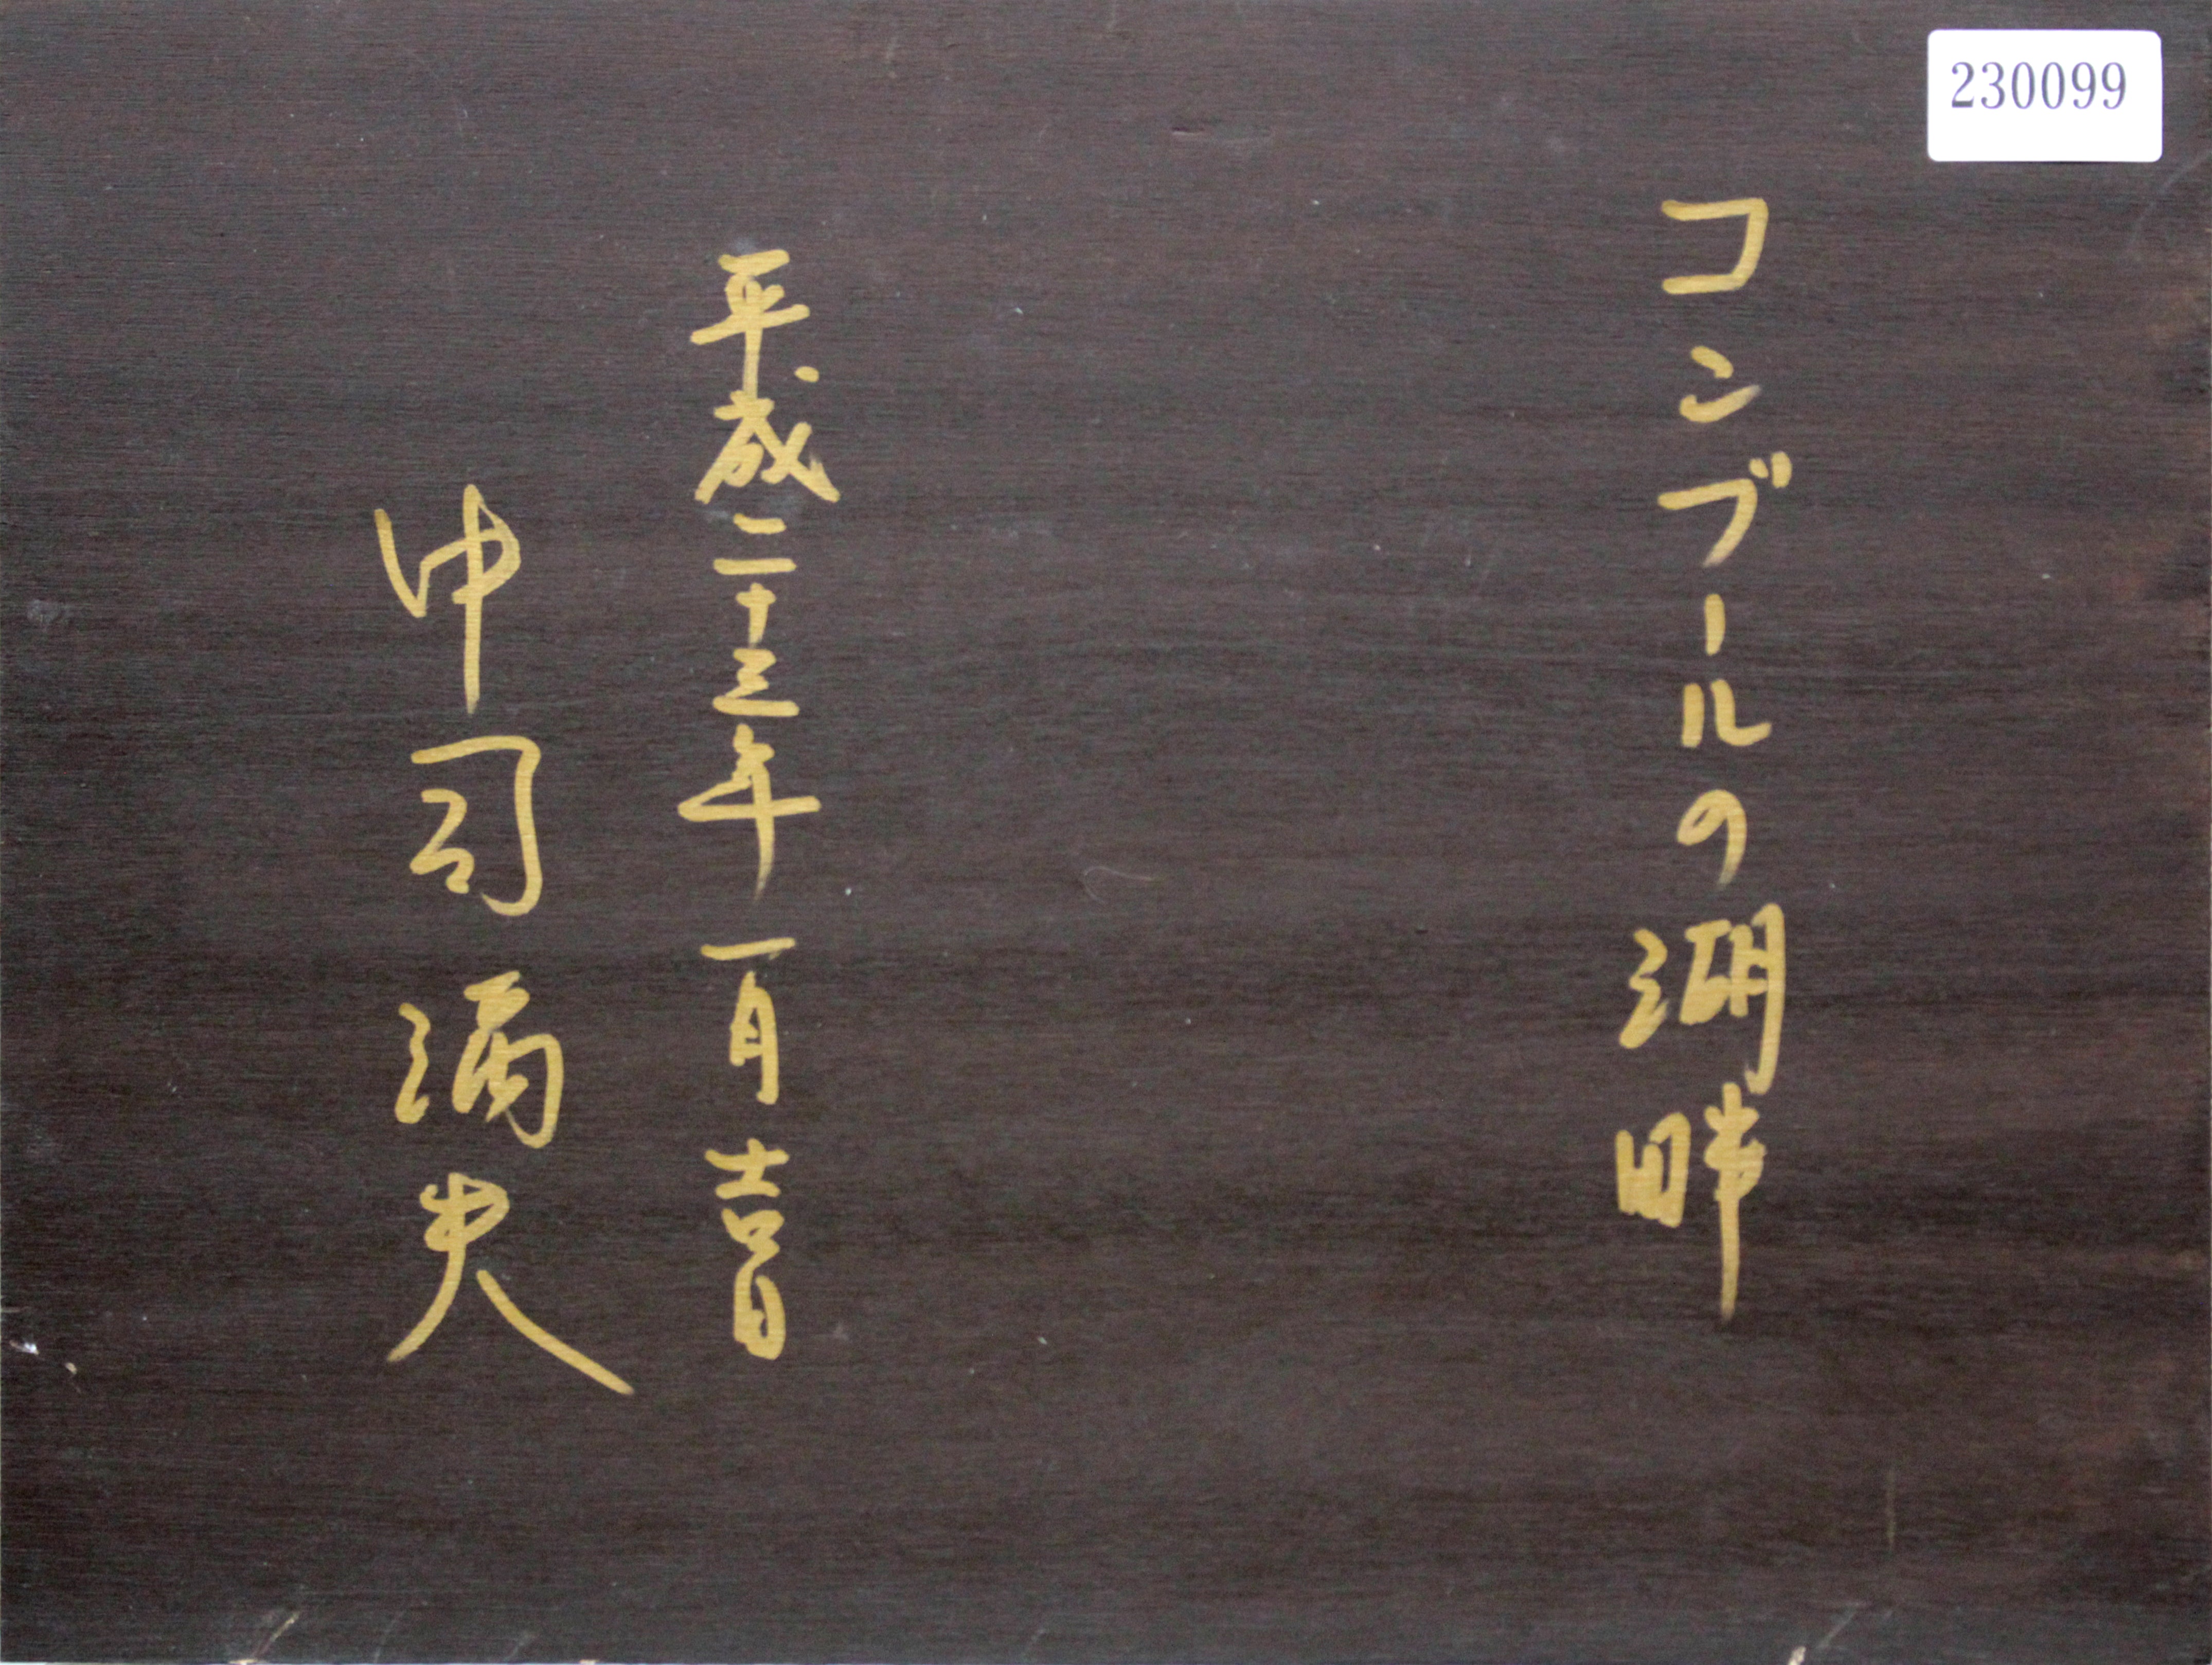 230099
コンブールの湖畔
平成二十三年 一月 吉日
中司満夫